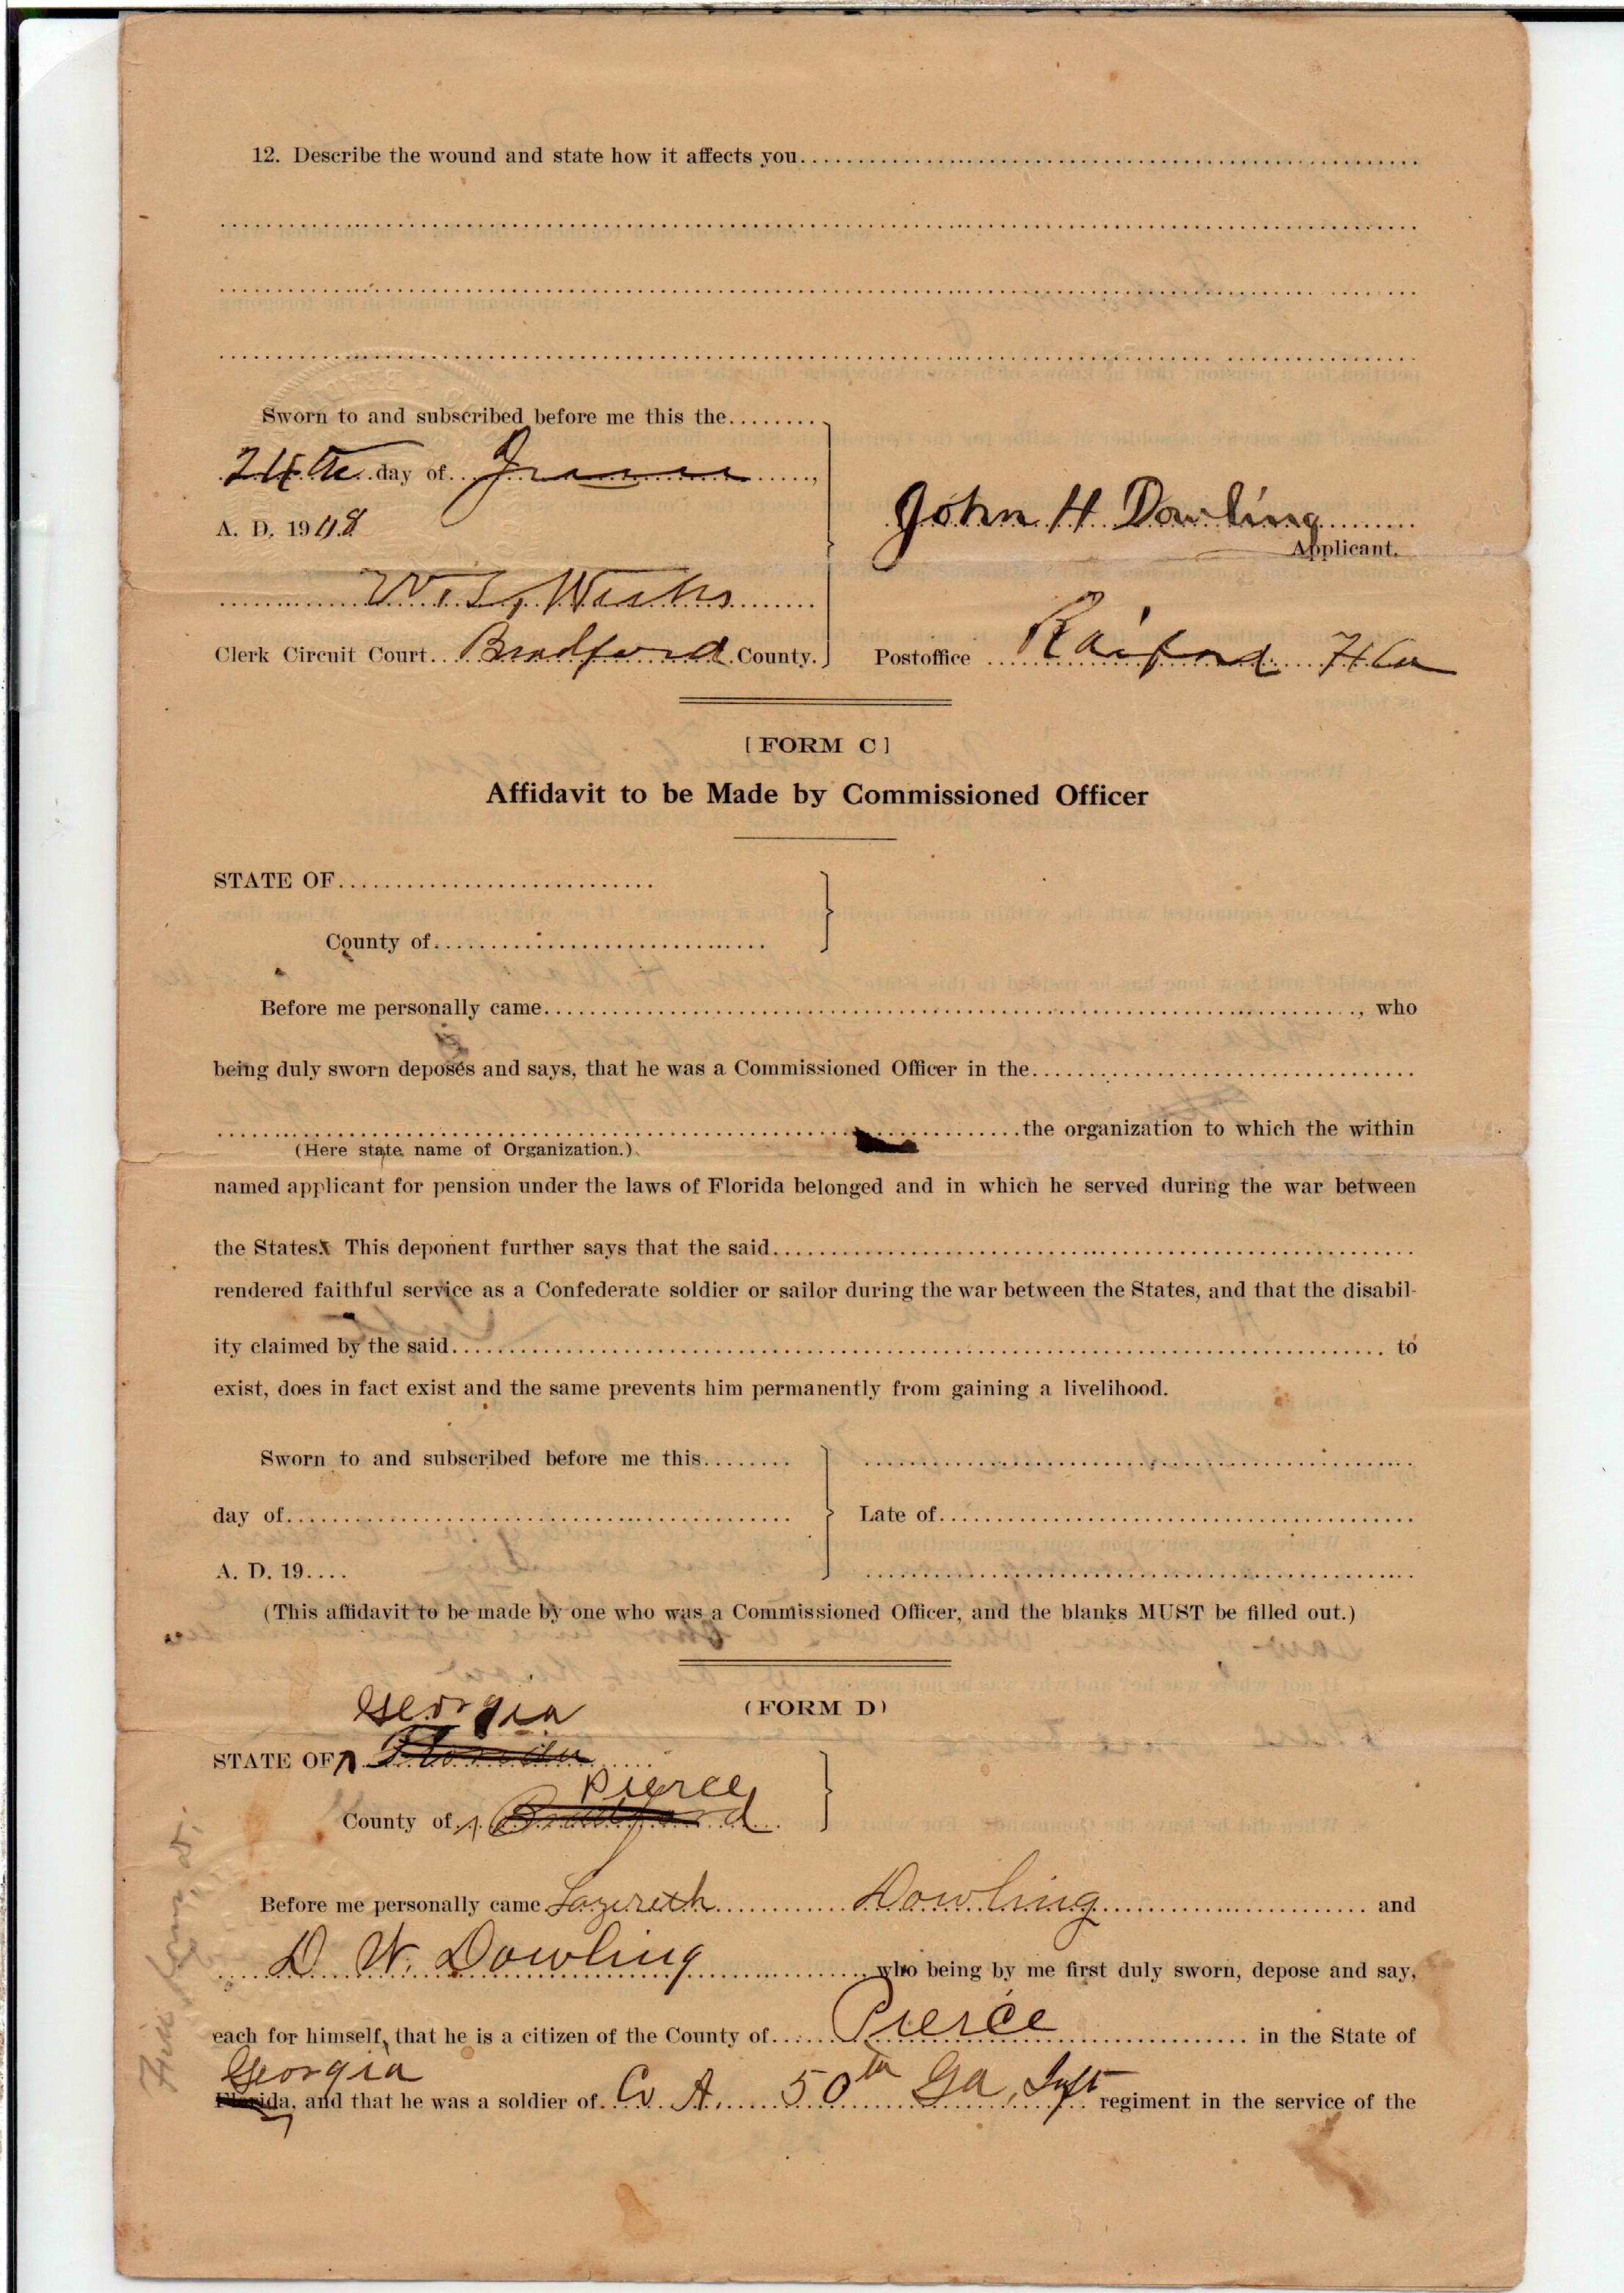 12. Describe the wound and state how it affects you
Sworn to and subscribed before me this the
24th day of
A. D. 1908
John H. Dowling
Applicant.
W. L. Weeks
Clerk Circuit Court Bradford County.
Postoffice Raiford Fla
[FORM C]
Affidavit to be Made by Commissioned Officer
STATE OF
County of
Before me personally came , who
being duly sworn deposes and says, that he was a Commissioned Officer in the
the organization to which the within
(Here state name of Organization.)
named applicant for pension under the laws of Florida belonged and in which he served during the war between
the States. This deponent further says that the said
rendered faithful service as a Confederate soldier or sailor during the war between the States, and that the disabil-
ity claimed by the said to
exist, does in fact exist and the same prevents him permanently from gaining a livelihood.
Sworn to and subscribed before me this
day of
Late of
A. D. 19
(This affidavit to be made by one who was a Commissioned Officer, and the blanks MUST be filled out.)
(FORM D)
Georgia
STATE OF Florida
Pierce
County of Bradford
Before me personally came Lazereth Dowling and
D. W. Dowling who being by me first duly sworn, depose and say,
each for himself, that he is a citizen of the County of Pierce in the State of
Georgia
Florida, and that he was a soldier of Co A. 50th Ga, Inft regiment in the service of the